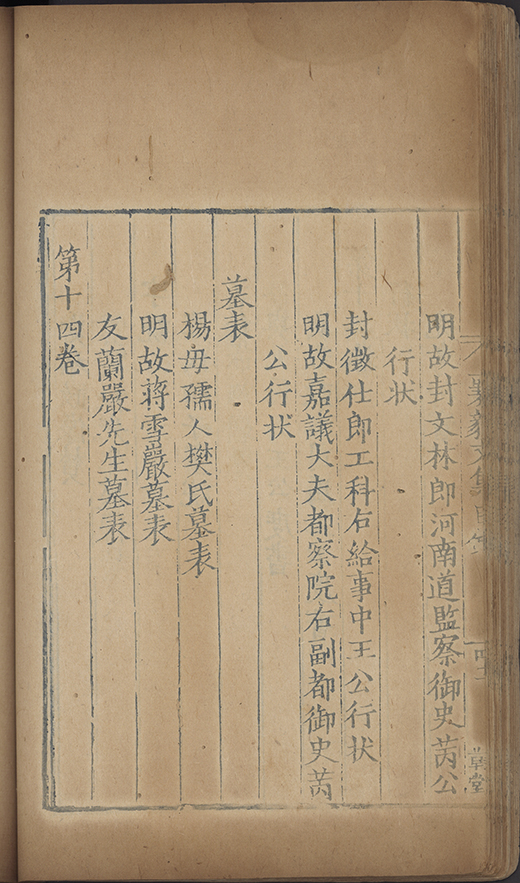 明故封文林郎河南道監察御史芮公
行状
封徵仕郎工科右給事中王公行状
明故嘉議大夫都察院右副都御史芮
公行状
墓表
楊母孺人樊氏墓表
明故蔣雪嚴墓表
友蘭嚴先生墓表
第十四卷